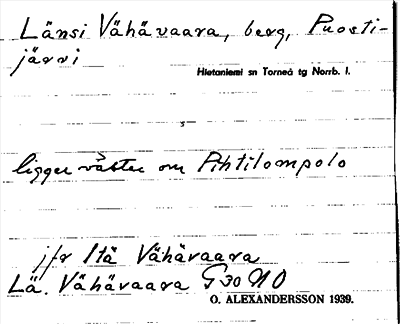 Länsi Vähävaara, berg, Puosti-
järvi
Hietaniemi sn Torneå tg Norrb. l.
ligger väster om Pihtilompolo
jfr Itä Vähävaara
Lä. Vähävaara G30 NO
O. ALEXANDERSSON 1939.